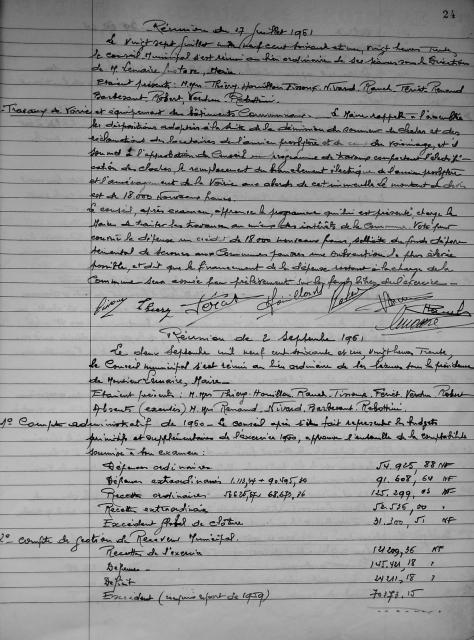 24
Réunion du 27 Juillet 1961
Le Vingt sept Juillet mil neuf cent soixante et un, vingt heures trente,
le Conseil Municipal s'est réuni au lieu ordinaire de ses séances sous la Présidence
de M. Lemaire, Maire
Etaient présents: M. Mrs Thiery. Houillon. Tisoux. Nivard. Rauch. Ferit. Renard
Barbesant. Robert. Verdun. Robottini.
- Travaux de Voirie et équipement des bâtiments Communaux. Le Maire rappelle à l'assemblée
les dispositions adoptées à la suite de la démission du sonneur de cloches et des
réclamations des locataires de l'ancien presbytère et du voisinage, et il
soumet à l'approbation du Conseil un programme de travaux comportant l'électrifi-
cation des cloches, le remplacement du branchement électrique de l'ancien presbytère
et l'aménagement de la Voirie aux abords de cet immeuble. Le montant du devis
est de 18.000 nouveaux francs.
Le Conseil, après examen, approuve le programme qui lui est présenté, charge le
Maire de traiter les travaux au mieux des intérêts de la Commune. Vote pour
couvrir la dépense un crédit de 18.000 nouveaux francs, sollicite du fonds dépar-
temental de secours aux Communes pauvres une subvention la plus élevée
possible, et dit que le financement de la dépense restant à la charge de la
Commune sera assuré par prélèvement sur les fonds libres de l'exercice.
Thiery
Réunion du 2 Septembre 1961
Le deux Septembre mil neuf cent soixante et un, vingt heures trente,
Le Conseil municipal s'est réuni au lieu ordinaire de ses séances sous la présidence
de Monsieur Lemaire, Maire.
Etaient présents: M. Mrs Thiery. Houillon. Rauch. Tisoux. Ferit. Verdun. Robert
Absents (excusés) M. Mrs Renard, Nivard. Barbesant. Robottini
1° Compte administratif de 1960. Le conseil après s'être fait représenter les budgets
primitifs et supplémentaires de l'exercice 1960, approuve l'ensemble de la comptabilité
soumise à son examen:
Dépenses ordinaires 54.925,88 NF
Dépenses extraordinaires 1.113,44 + 90.495,20 91.608,64 NF
Recettes ordinaires 68.673,26 125.299,03 NF
Recettes extraordinaires 52.536,00
Excédent global de Clôture 31.300,51 NF
2° Compte de gestion du Receveur Municipal.
Recettes de l'exercice 121.209,36 NF
Dépenses 145.421,18
Déficit 24.211,18
Excédent (compris report de 1959) 70.173,15